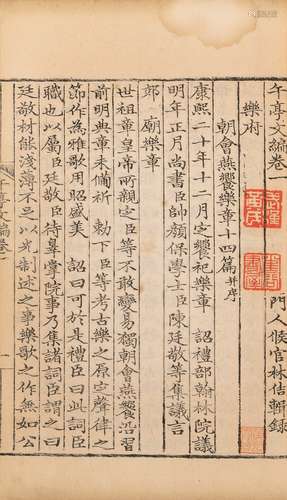 午亭文編卷一
門人候官林佶輯錄
樂府
朝會燕饗樂章十四篇并序
康熙二十年十二月定饗祀樂章 詔禮部翰林院議
明年正月尚書臣帥顏保學士臣陳廷敬等集議言
郊廟樂章
世祖章皇帝所親定臣等不敢變易獨朝會燕饗沿習
前明典章未備祈 勑下臣等考古樂之原定聲律之
節作為雅歌用昭盛美 詔曰可於是禮臣曰此詞臣
職也以屬臣廷敬臣待皇掌院事乃集諸詞臣謂之曰
廷敬材能淺薄不足以光制述之事樂歌之作無如公
午亭文編卷一